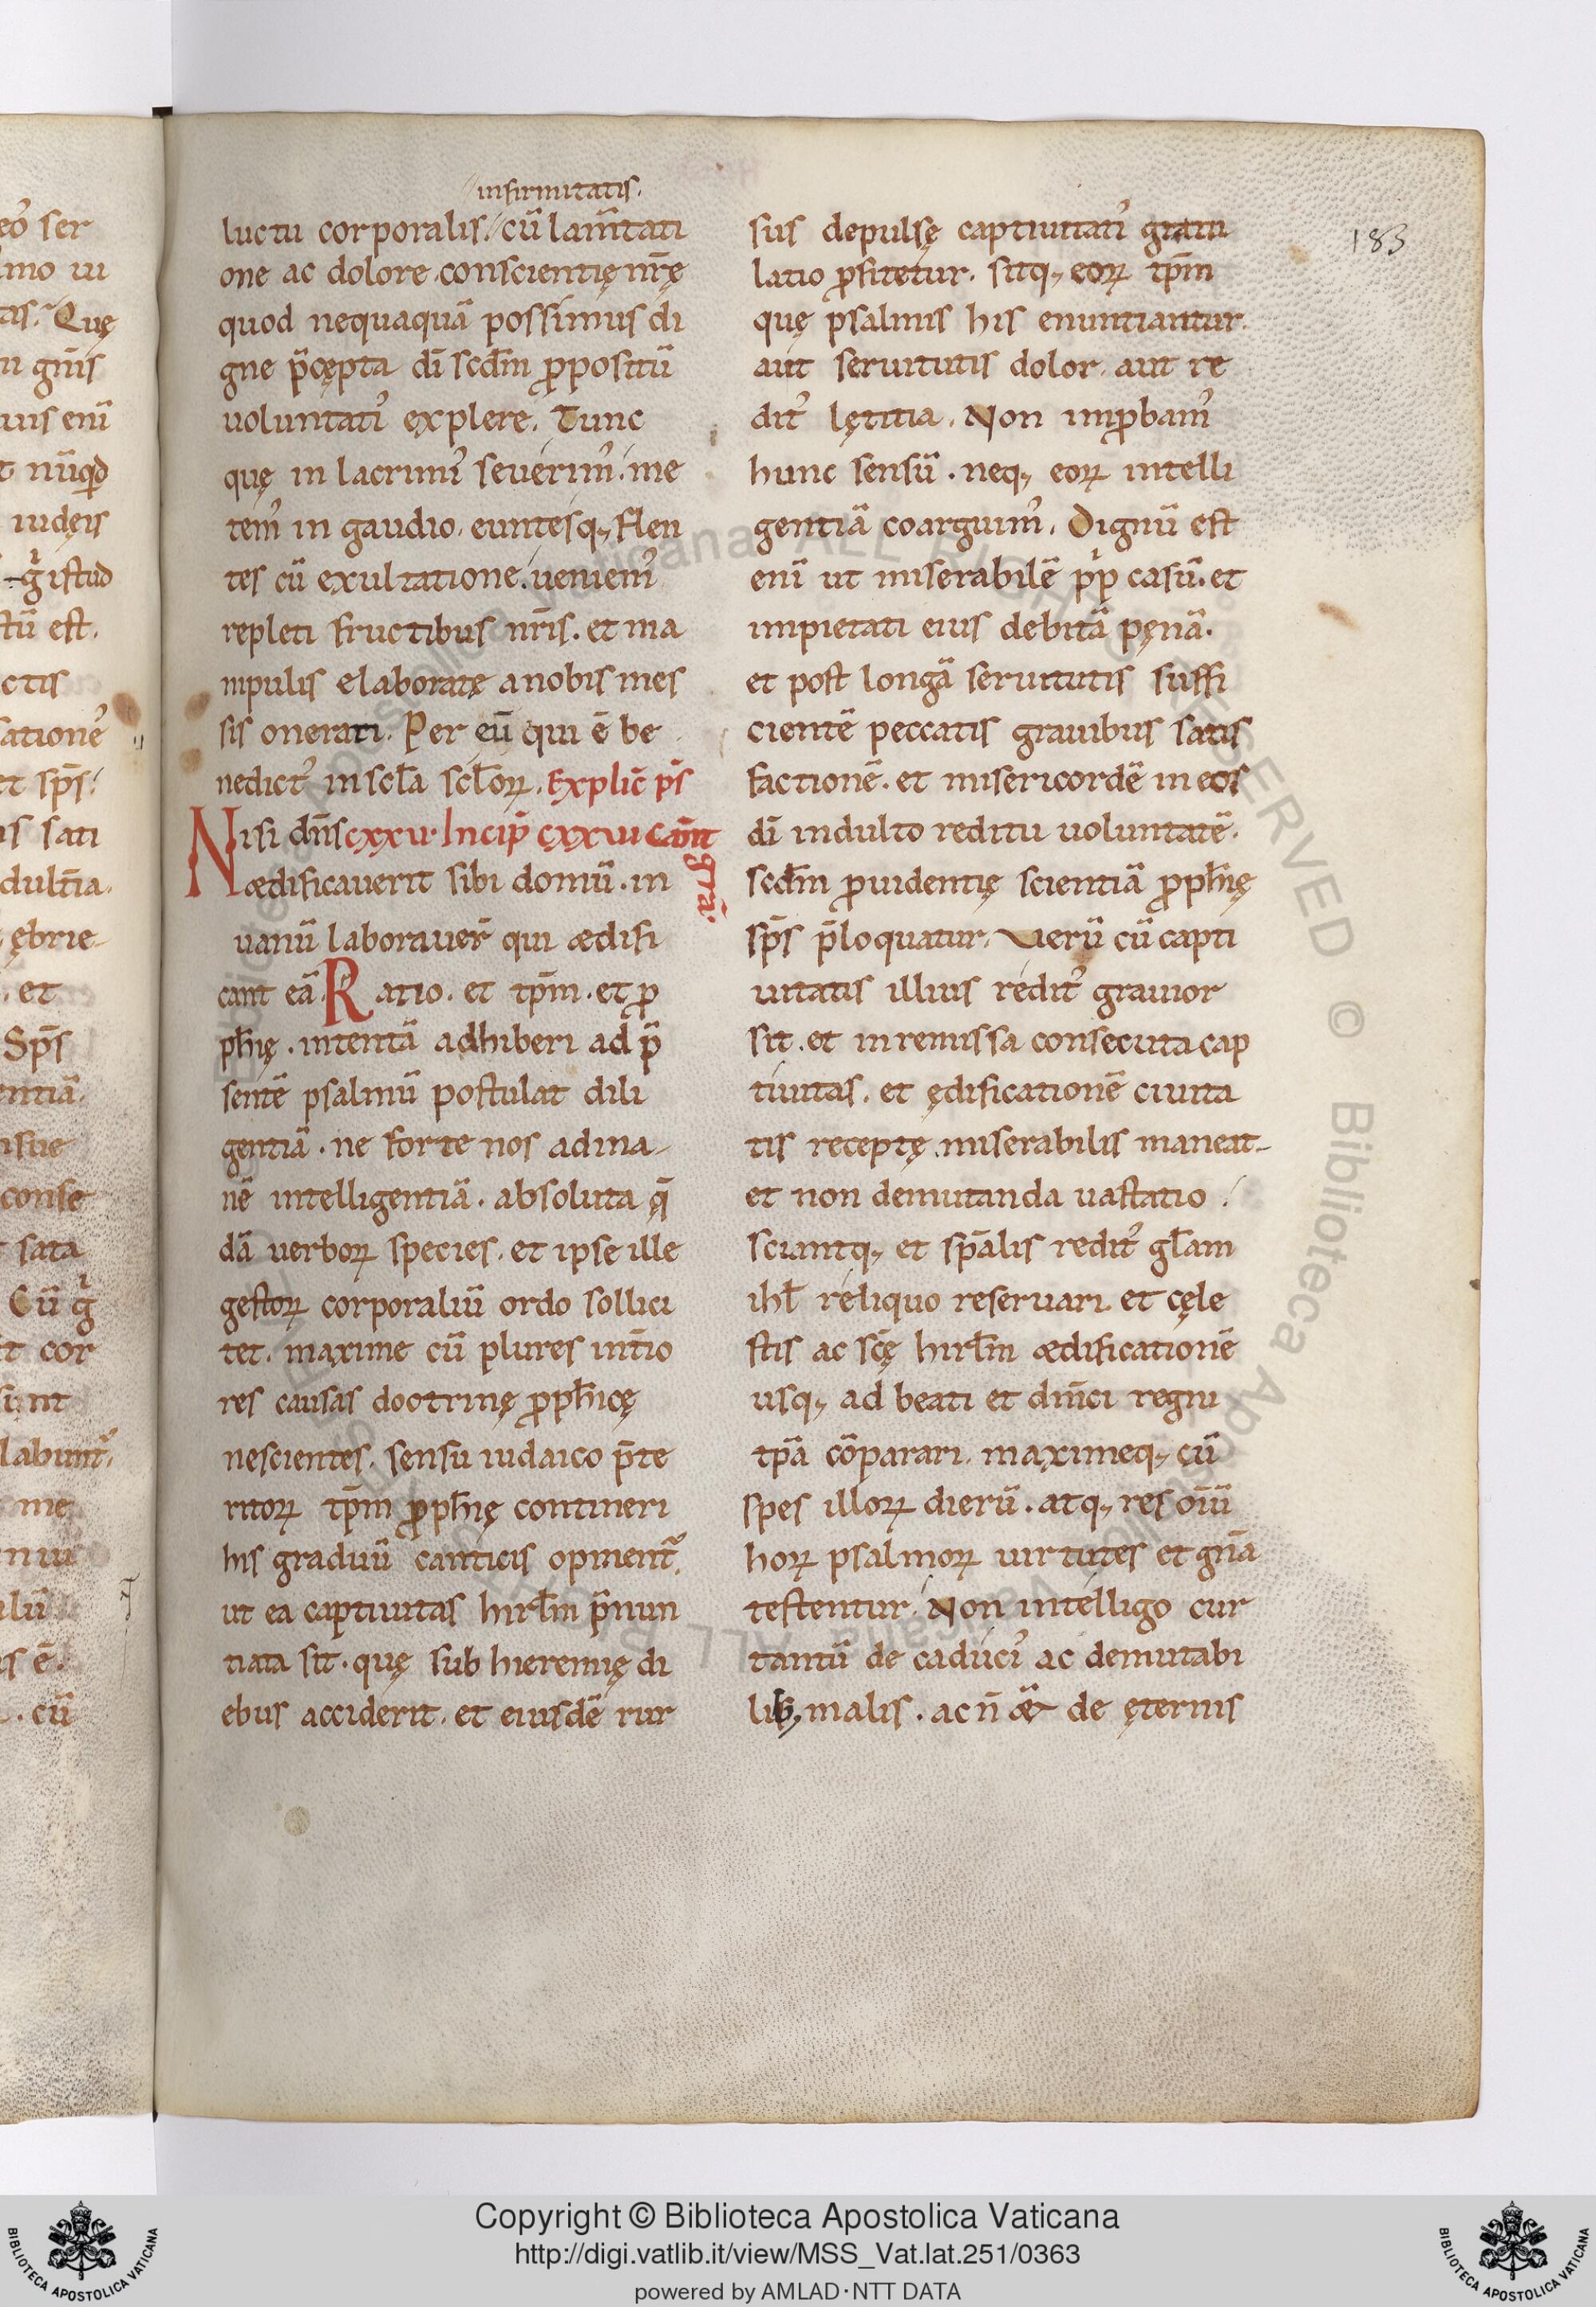 infirmitatis.
luctu corporalis. cũ lam̃tati
one ac dolore. conscientię nr̃ę
quod nequaquã possimus di
gne p̃cępta dĩ scd̃m ꝓpositũ
uoluntatꝰ explere. Tunc
quę in lacrimꝰ seuerimꝰ. me
temꝰ in gaudio. euntesq; flen
tes cũ exultatione. ueniemꝰ
repleti fructibus nr̃is. et ma
nipulis elaboratę anobis mes
sis onerati. Per eũ qui ẽ be
nedictꝰ in scl̃a scl̃oꝝ. Explic̃ ps̃
Nisi dñs cxxvi Incip̃ cxxvii cañt
grã
ædificauerit sibi domũ. in
uanũ laborauer̃ qui ædifi
cant eã. Ratio. et tp̃m. et ꝓ
ph̃ię. intentã adhiberi ad p̃
sentẽ psalmũ postulat dili
gentiã. ne forte nos ad ina-
nẽ intelligentiã. absoluta q̃
dã uerboꝝ species. et ipse ille
gestoꝝ corporaliũ ordo sollici
tet. maxime cũ plures int̃io
res causas dootrinę ꝓph̃icę
nescientes. sensu iudaico p̃te
ritoꝝ tp̃m ꝓph̃ię contineri
his graduũ canticis opinentᷣ.
ut ea captiuitas hirl̃m p̃nun
tiata sit. quę sub hieremię di
ebus acciderit. et eiusdẽ rur
sus depulsę captiuitatꝰ gratu
latio ꝓfitetur. sitq; eoꝝ tp̃m
quę psalmis his enuntiantur.
aut seruitutis dolor. aut re
ditꝰ lętitia. Non imꝓbamꝰ
hunc sensũ. neq; eoꝝ intelli
gentiã coarguimꝰ. Dignũ est
enĩ ut miserabilẽ pͥꝑ casũ. et
impietati eius debitã pęnã.
et post longã seruitutis suffi
cientẽ peccatis grauibus satis
factionẽ. et misericordẽ in eos
dĩ indulto reditu uoluntatẽ.
scd̃m ꝓuidentię scientiã ꝓph̃ię
sp̃s p̃loquatur. Verũ cũ capti
uitatis illius reditꝰ grauior
sit. et inremissa consecuta cap
tiuitas. et ędificationẽ ciuita
tis receptę. miserabilis maneat-
et non demutanda uastatio.
sciantq; et sp̃alis reditꝰ gl̃am
ihl̃ reliquo reseruari. et cęle
stis ac sc̃ę hirl̃m ædificationẽ
usq; ad beati et dñici regni
tp̃a cõparari. maximeq; cũ
spes illoꝝ dierũ. atq; res oĩũ
hoꝝ psalmoꝝ uirtutes et gñã
testentur. Non intelligo cur
tantũ de caducꝰ ac demutabi
lib; malis. ac ñ de ęternis
183
eoꝰ ser
Quę
n gñis
uis enĩ
t nũqd
iudęis
gͥ istud
tũ est.
ctis
ationeꝰ
et sp̃s.
is sati
dult̃ia.
ębrie-
. et
Sp̃s
entiã.
conse
sata
Cũ gͥ
it cor
sunt
labuntᷣ.
me
is ẽ.
. cũ
Copyright © Biblioteca Apostolica Vaticana
http://digi.vatlib.it/view/MSS_Vat.lat.251/0363
powered by AMLAD·NTT DATA
BIBLIOTECA APOSTOLICA VATICANA
BIBLIOTECA APOSTOLICA VATICANA